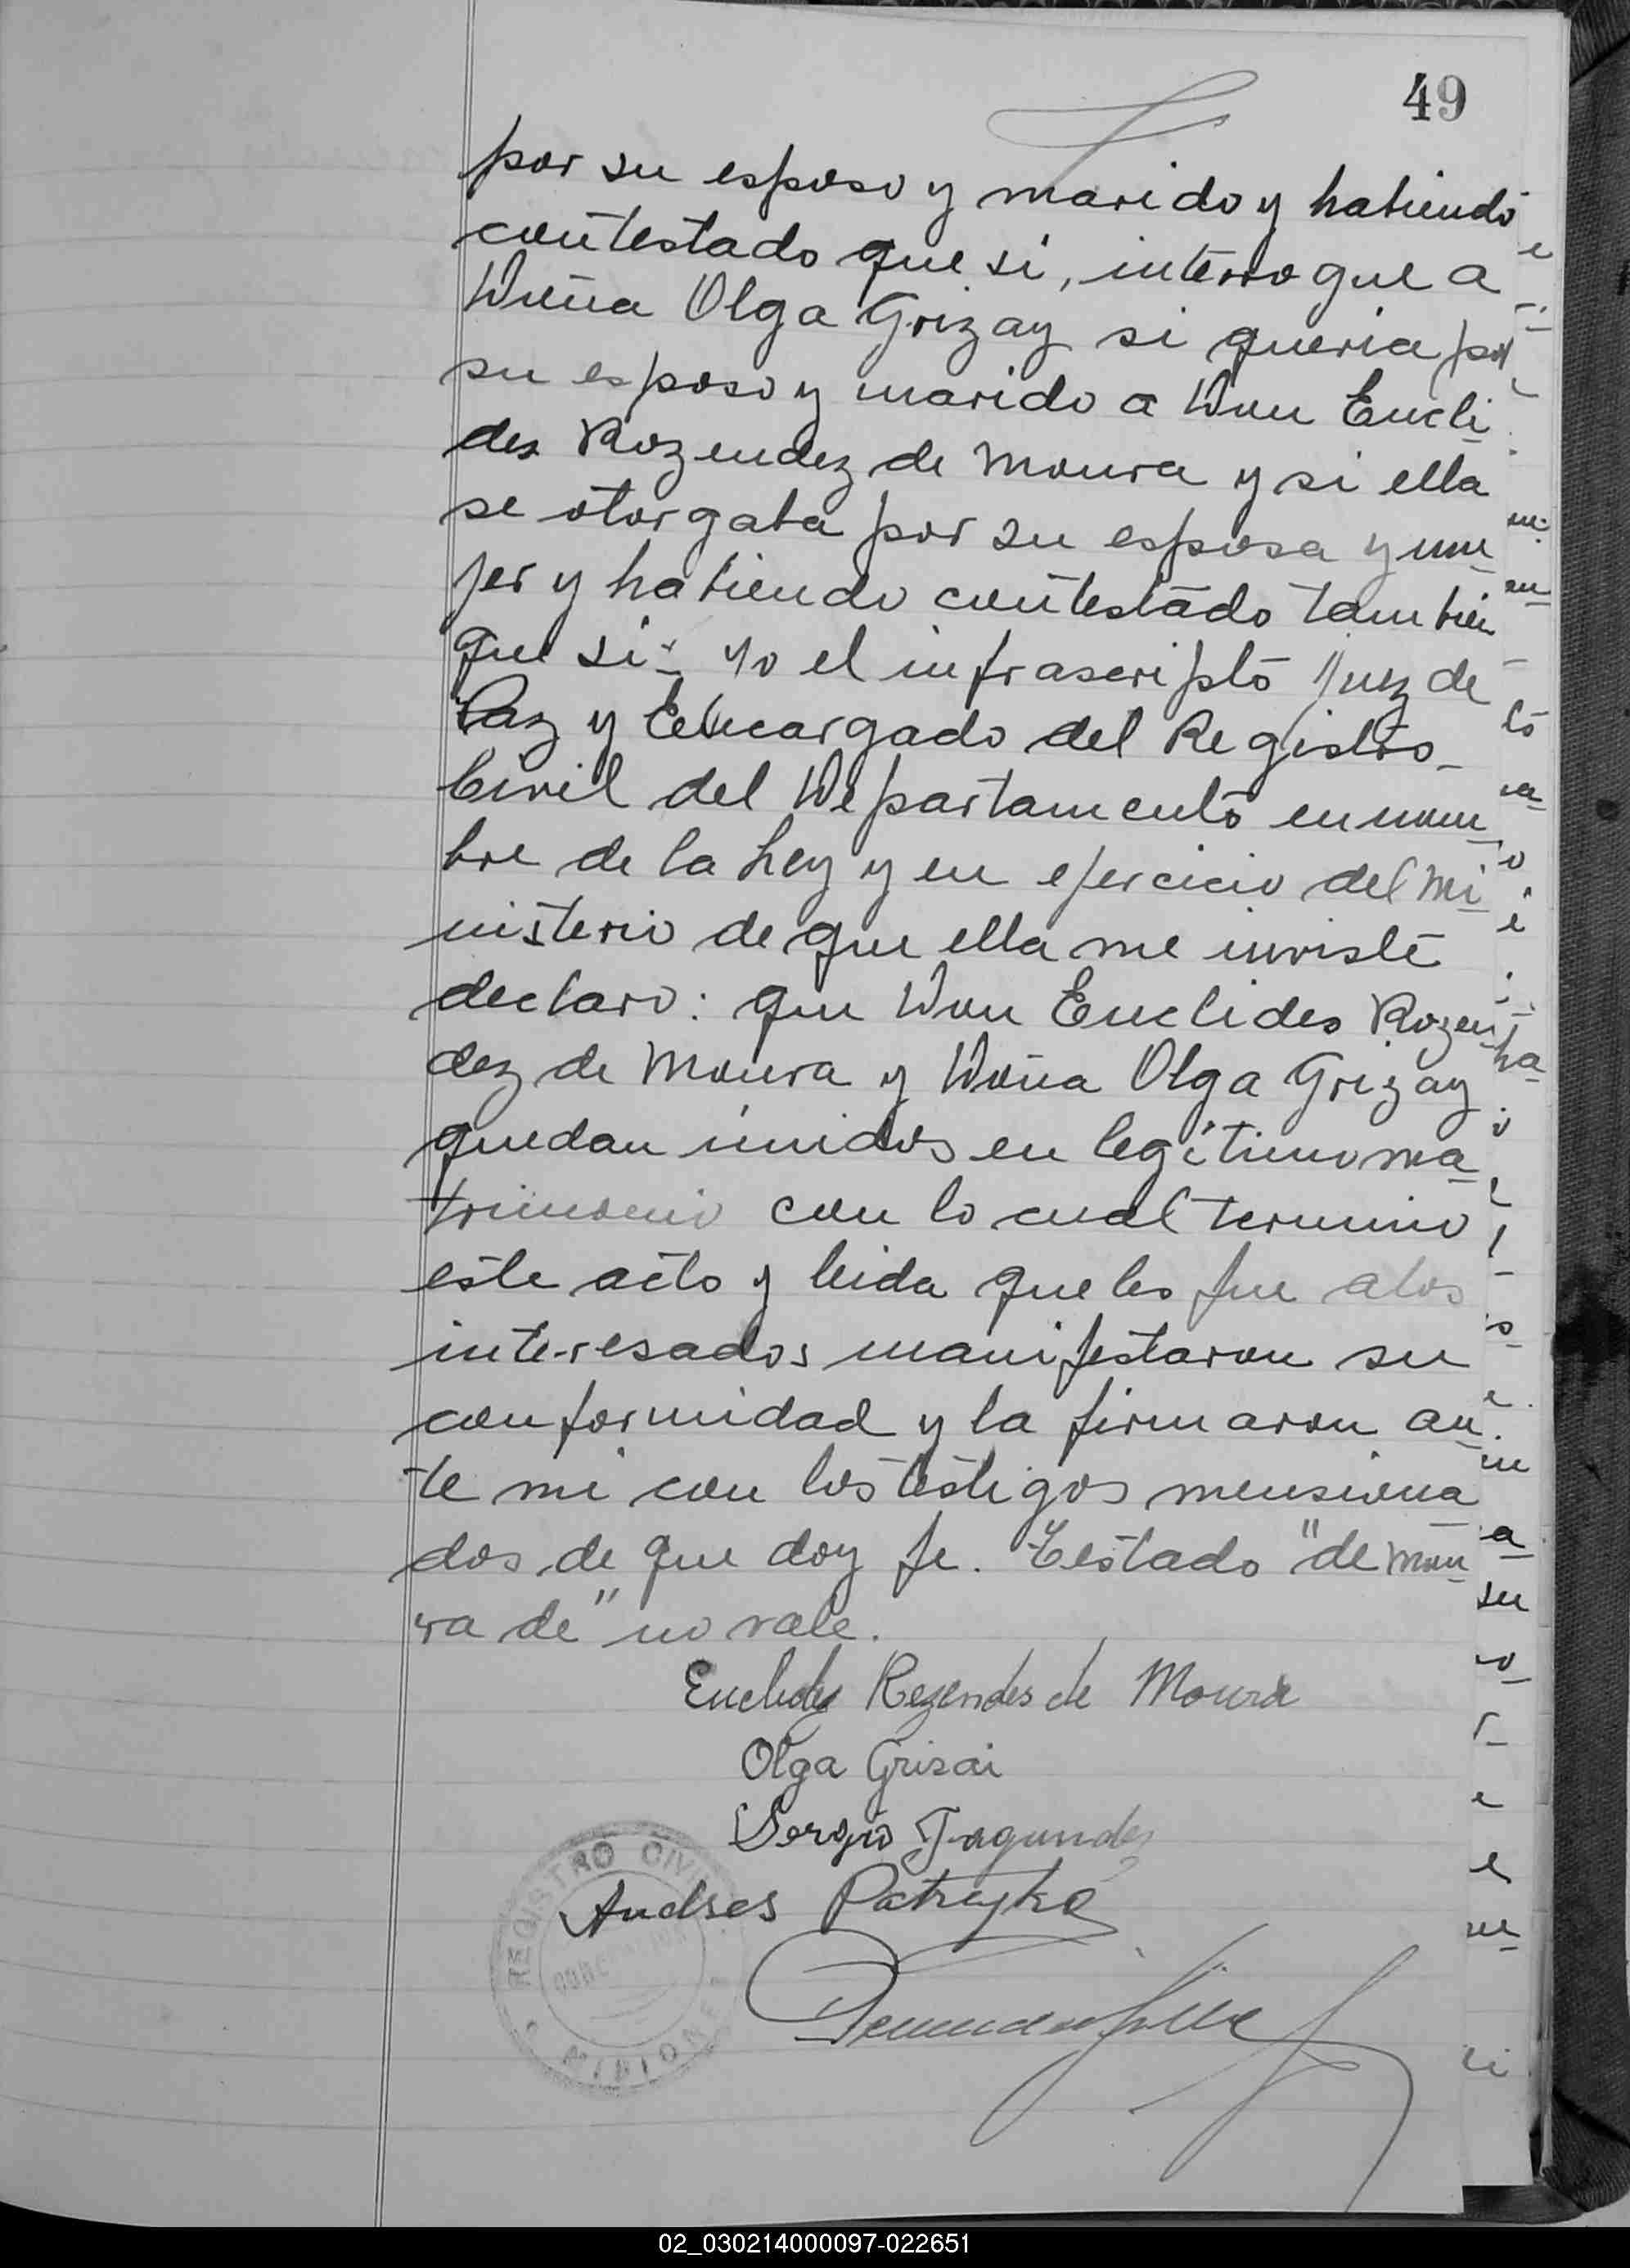 49
por su esposo y marido y habiendo
contestado que si, interrogue a
Doña Olga Grizay si queria por
su esposo y marido a Don Eucli
des Rozendez de Moura y si ella
se otorgaba por su esposa y mu
jer y habiendo contestado tambien
que si: Yo el infrascripto Juez de
Paz y Encargado del Registro
Civil del Departamento en nom
bre de la Ley y en ejercicio del Mi
nisterio de que ella me inviste
declaro: que Don Euclides Rozen
dez de Moura y Doña Olga Grizay
quedan únidos en legítimo ma
trimonio con lo cual termino
este acto y leida que les fue a los
interesados manifestaron su
conformidad y la firmaron an
te mi con los testigos mensiona
dos de que doy fe. Testado "de Mou
ra de" no vale.
Euclides Rezendes de Moura
Olga Grisai
Sergio Fagundes
Andres
REGISTRO CIVIL
MISIONES
02_030214000097-022651